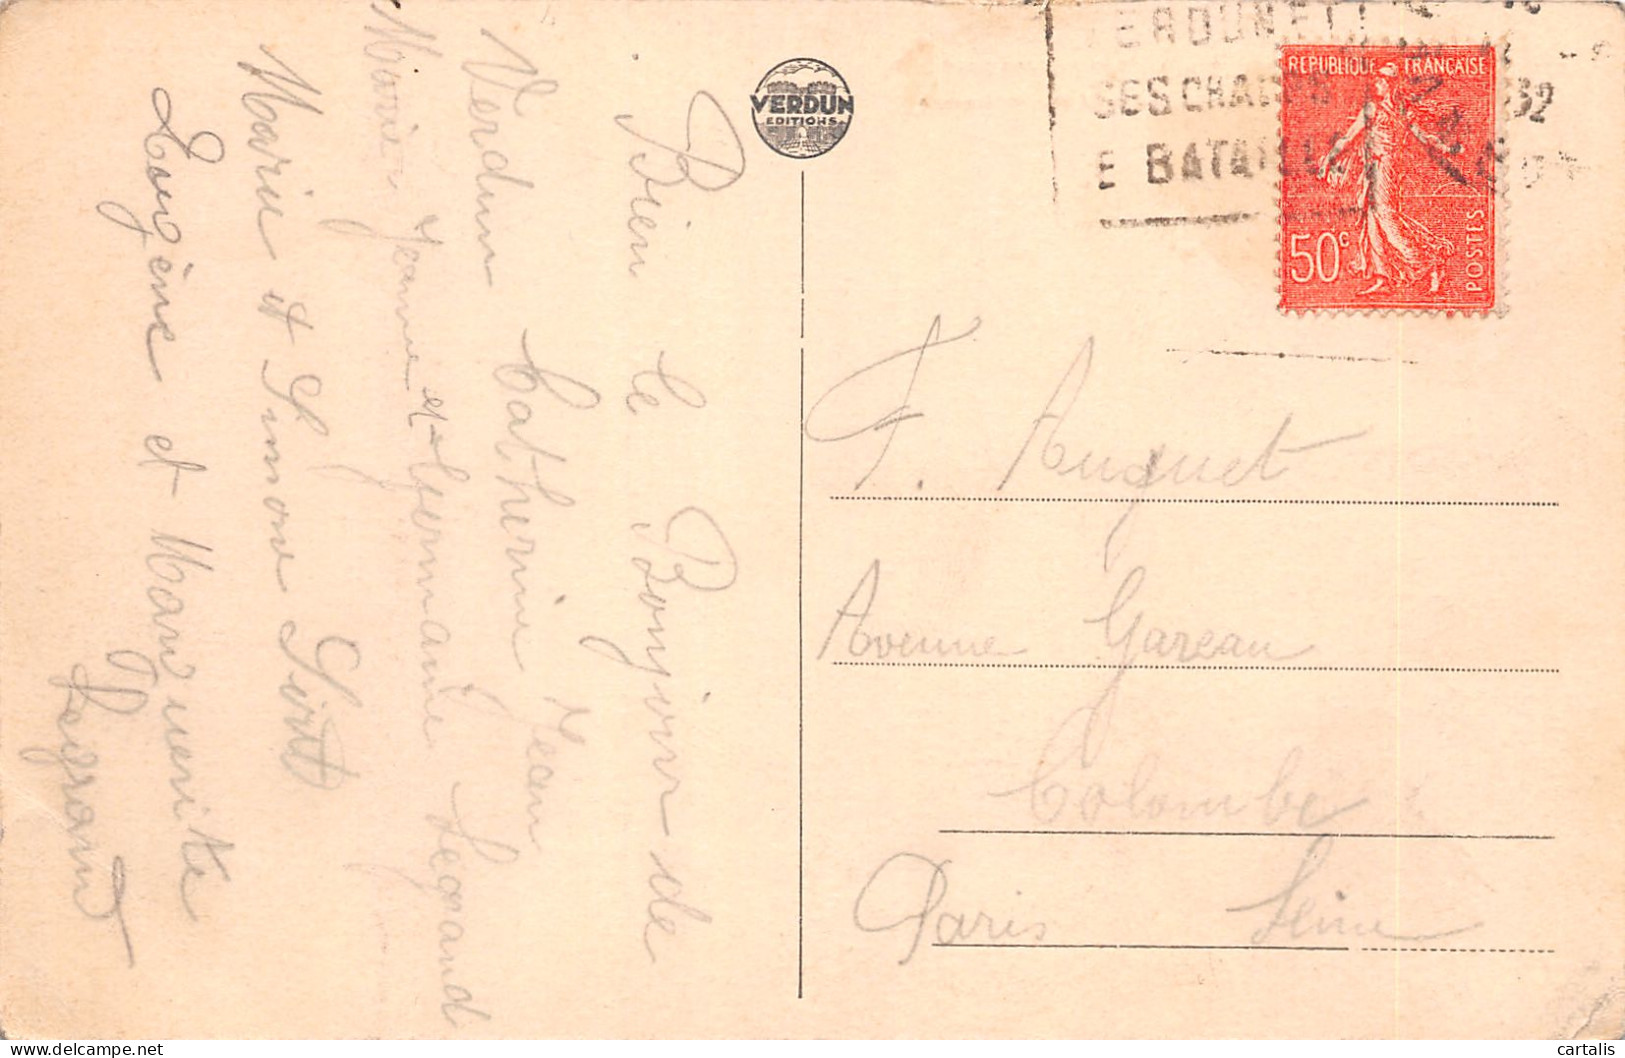 Bien le Bonjour de
Verdun Catherine Jean
Marie Jeanne et Germaine Legrand
Marie et Simone
Eugène et Marguerite
Legrand
VERDUN
EDITIONS
VERDUN ET
SES CHAMPS
E BATAILLE
32
REPUBLIQUE FRANÇAISE
50c
POSTES
F. Auquet
Avenue Gareau
Colombe
Paris Seine
cartalis